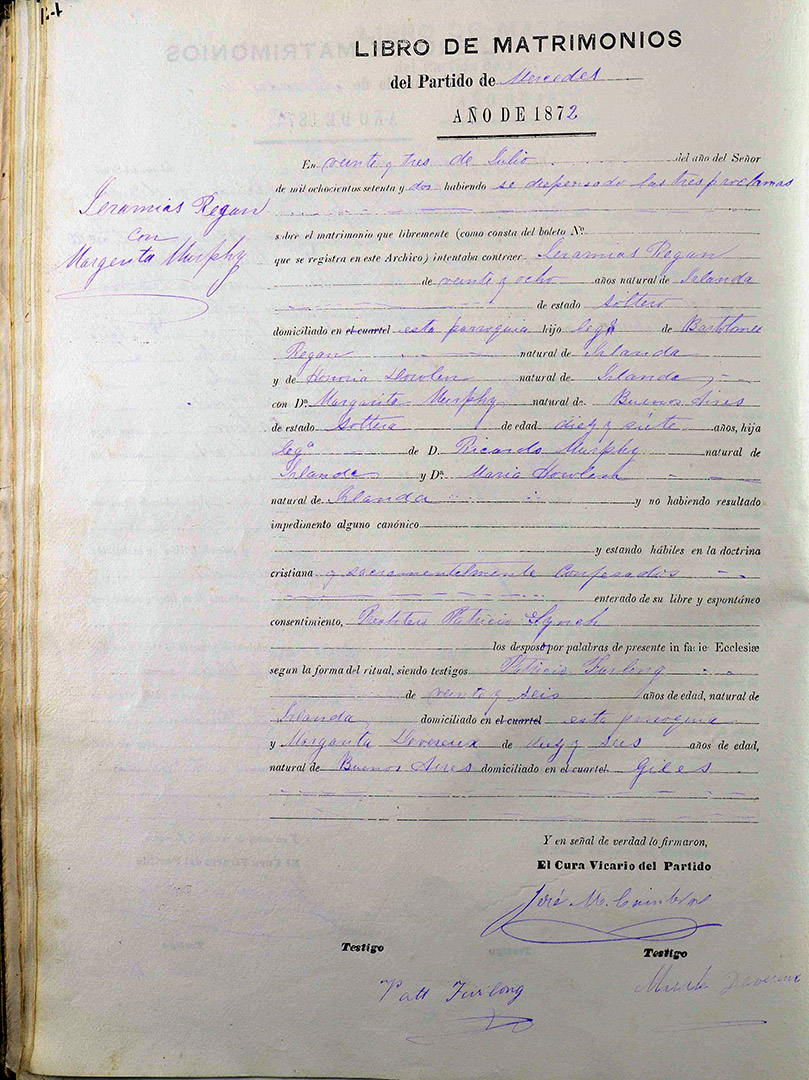 124
LIBRO DE MATRIMONIOS
del Partido de Mercedes
AÑO DE 1872
Jeramias Regan
con
Margarita Murphy
En veinte y tres de Julio del año del Señor
de mil ochocientos setenta y dos habiendo se dispensado las tres proclamas
sobre el matrimonio que libremente (como consta del boleto Nº
que se registra en este Archivo) intentaba contraer Jeramias Regan
de veinte y ocho años natural de Irlanda
de estado soltero
domiciliado en el cuartel esta parroquia hijo legº de Bartolome
Regan natural de Irlanda
y de Honoria natural de Irlanda
con Dª Margarita Murphy natural de Buenos Aires
de estado soltera de edad diez y siete años, hija
legª de D. Ricardo Murphy natural de
Irlanda y Dª Maria
natural de Irlanda y no habiendo resultado
impedimento alguno canónico
y estando hábiles en la doctrina
cristiana y sacramentalmente confesados
enterado de su libre y espontáneo
consentimiento, Patricio Lynch
los desposó por palabras de presente in facie Ecclesiæ
segun la forma del ritual, siendo testigos Patricio Furlong
de veinte y seis años de edad, natural de
Irlanda domiciliado en el cuartel esta parroquia
y Margarita Devereux de diez y seis años de edad,
natural de Buenos Aires domiciliado en el cuartel Giles
Y en señal de verdad lo firmaron,
El Cura Vicario del Partido
José M.
Testigo
Testigo
Patt Furlong
Devereux